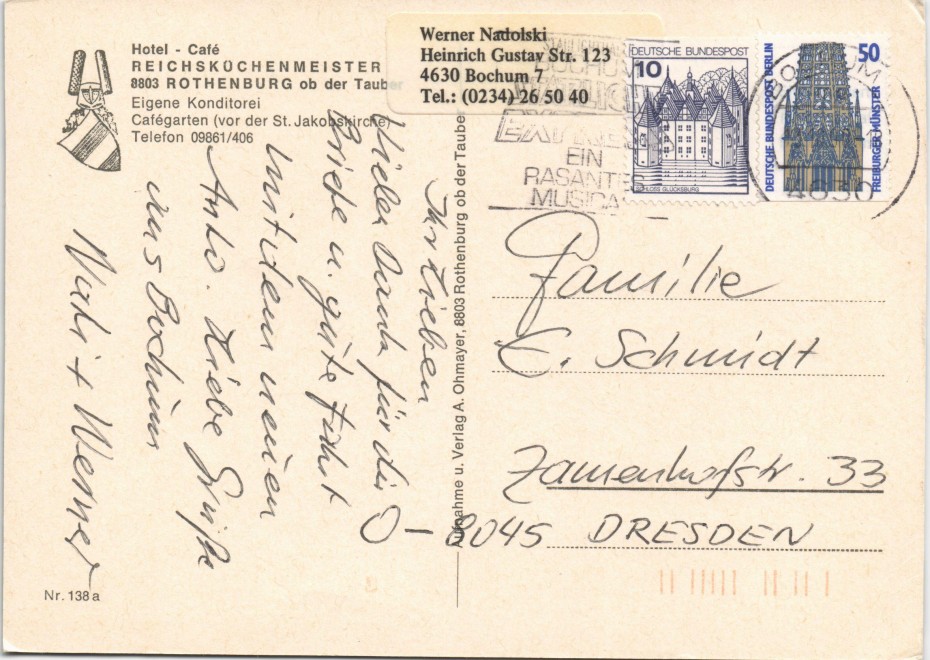 Hotel - Café
REICHSKÜCHENMEISTER
8803 ROTHENBURG ob der Taub
Eigene Konditorei
Cafégarten (vor der St. Jakobskirche)
Telefon 09861/406
Werner Nadolski
Heinrich Gustav Str. 123
4630 Bochum 7
Tel.: (0234) 26 50 40
DEUTSCHE BUNDESPOST
10
SCHLOSS GLÜCKSBURG
DEUTSCHE BUNDESPOST BERLIN
50
FREIBURGER MÜNSTER
BOCHUM
4630
EIN
RASANTES
MUSICA
Ihr Lieben
Vielen Dank für die
Briefe u. gute Fahrt
mit dem neuen
Auto. Liebe Grüße
aus Bochum
+ Werner
Aufnahme u. Verlag A. Ohmayer, 8803 Rothenburg ob der Taube
Familie
E. Schmidt
Zamenhofstr. 33
O-8045 DRESDEN
Nr. 138a